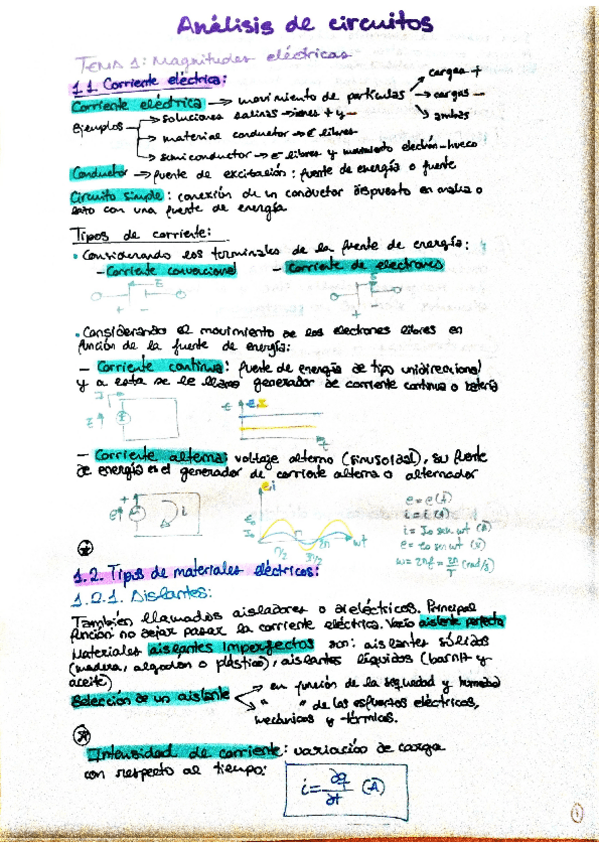 Análisis de circuitos
TEMA 1: Magnitudes eléctricas
1.1. Corriente eléctrica:
Corriente eléctrica → movimiento de partículas → cargas +
→ cargas -
→ ambas
Ejemplos → soluciones salinas → iones + y -
→ material conductor → e⁻ libres
→ semiconductor → e⁻ libres y movimiento electrón-hueco
Conductor → fuente de excitación: fuente de energía o fuente
Circuito simple: conexión de un conductor dispuesto en malla o
lazo con una fuente de energía.
Tipos de corriente:
• Considerando los terminales de la fuente de energía:
- Corriente convencional - Corriente de electrones
E
+ -
+ -
• Considerando el movimiento de los electrones libres en
función de la fuente de energía:
- Corriente continua: fuente de energía de tipo unidireccional
y a esta se le llama generador de corriente continua o batería
I
E
E, I
t
- Corriente alterna: voltaje alterno (sinusoidal), su fuente
de energía es el generador de corriente alterna o alternador
+
e
i
e,i
E₀
I₀
π/2 3π/2 2π wt
e = e(t)
i = i(t)
i = I₀ sen wt (A)
e = E₀ sen wt (V)
w = 2πf = 2π/T (rad/s)
1.2. Tipos de materiales eléctricos:
1.2.1. Aislantes:
También llamados aisladores o dieléctricos. Principal
función no dejar pasar la corriente eléctrica. Vacío aislante perfecto
Materiales aislantes imperfectos son: aislantes sólidos
(madera, algodón o plástico), aislantes líquidos (barniz y
aceite)
Selección de un aislante → en función de la sequedad y humedad
→ " " de los esfuerzos eléctricos,
mecánicos y térmicos.
Intensidad de corriente: variación de carga
con respecto al tiempo:
i = ∂q/∂t (A)
1